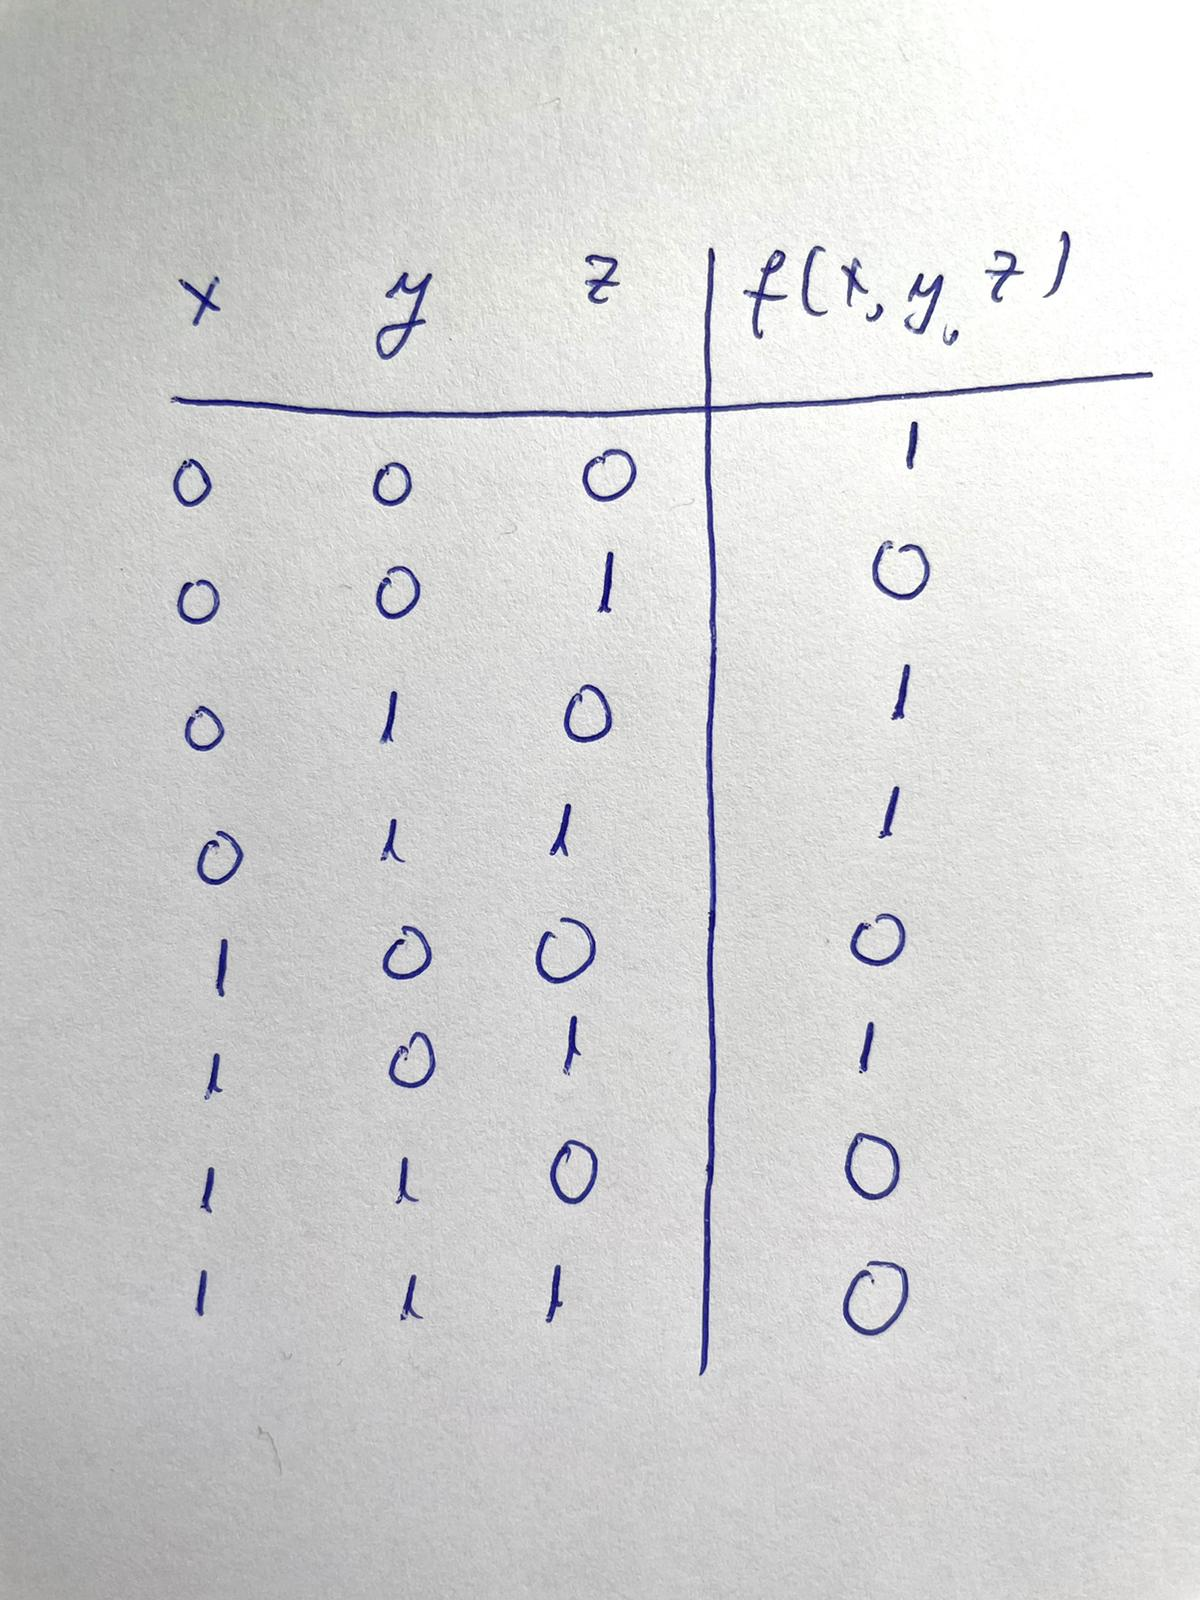 x y z f(x, y, z)
0 0 0 1
0 0 1 0
0 1 0 1
0 1 1 1
1 0 0 0
1 0 1 1
1 1 0 0
1 1 1 0